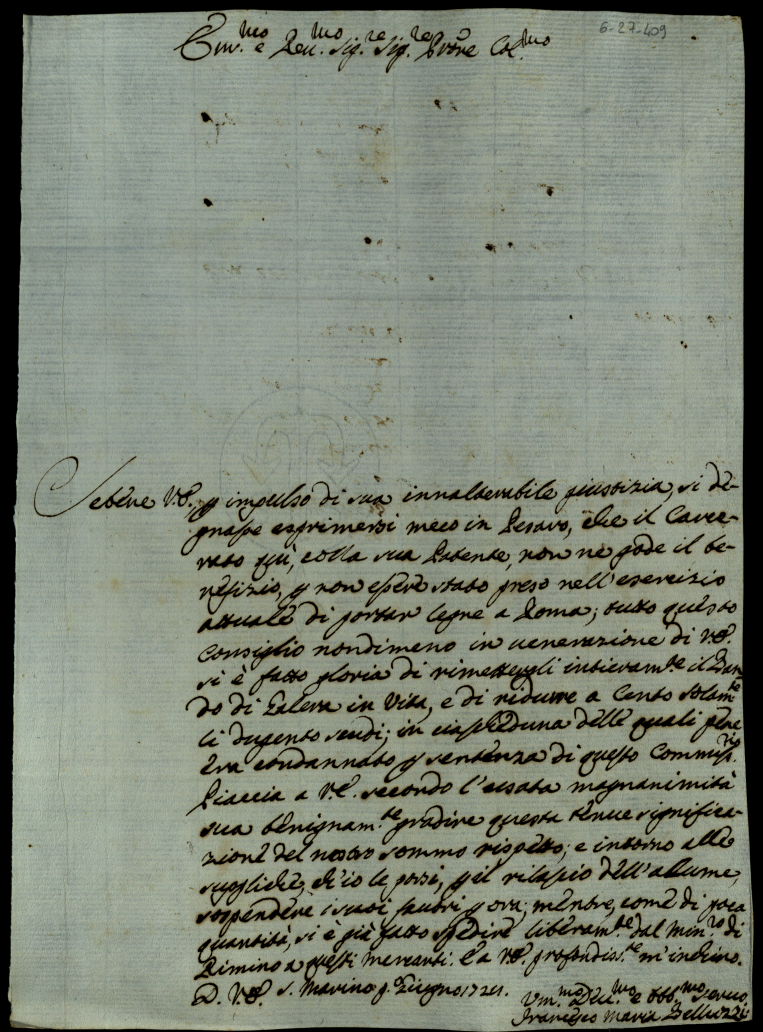 6-27-409
Em.mo e Reu.mo Sig.re Sig.re Prõne Col.mo
Sebene V.E. p impulso di sua innalterabile giustizia, si de-
gnasse esprimersi meco in Pesaro, che il Carce-
rato quì, colla sua Patente, non ne gode il be-
nefizio, p non essere stato preso nell'esercizio
attuale di portar legne a Roma; tutto questo
Consiglio nondimeno in uenerazione di V.E.
si è fatto gloria di rimettergli intieram.te il Ban-
do di Galera in Vita, e di ridurre a Cento solam.te
li dugento scudi; in ciascheduna delle quali pene
era condannato p sentenza di questo Commiss.rio
Piaccia a V.E. secondo l'usata magnanimità
sua benignam.te gradire questa tenue significa-
zione del nostro sommo rispetto; e intorno alle
suppliche, ch'io le porsi, p il rilascio dell'allume,
sospendere i suoi fauori p ora; mentre, come di poca
quantità, si è già fatto spedire liberam.te dal Min.ro di
Rimino a questi mercanti. E a V.E. profondiss.te m'inchino.
D. V.E. S. Marino p.o Giugno 1721.
Vm.mo Deu.mo e obb.mo seruo
Francesco Maria Belluzzi